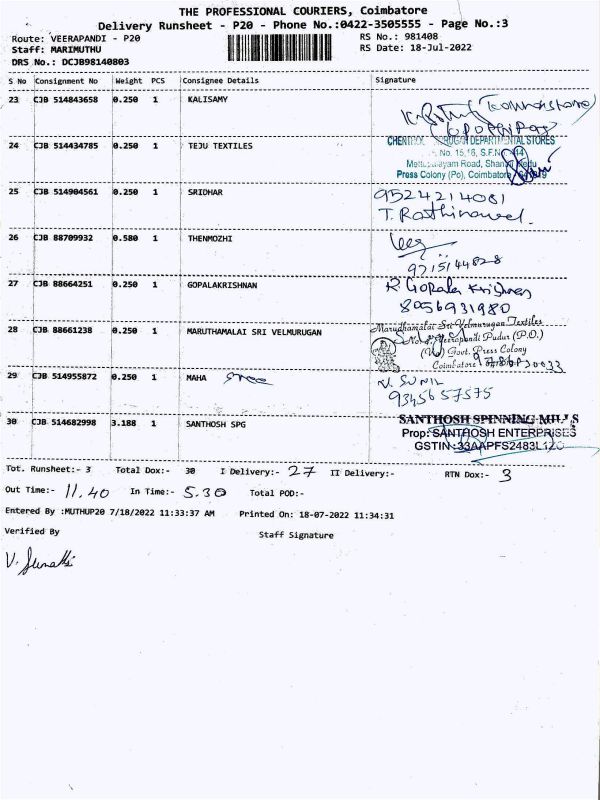 THE PROFESSIONAL COURIERS, Coimbatore
Delivery Runsheet - P20 - Phone No.:0422-3505555 - Page No.:3
Route: VEERAPANDI - P20 RS No.: 981408
Staff: MARIMUTHU RS Date: 18-Jul-2022
DRS No.: DCJB98140803
S No Consignment No Weight PCS Consignee Details Signature
23 CJB 514843658 0.250 1 KALISAMY
24 CJB 514434785 0.250 1 TEJU TEXTILES
DEPARTMENTAL STORES
No. 15,16, S.F.N
Road,
Press Colony (Po), Coimbatore
25 CJB 514904561 0.250 1 SRIDHAR
9524214081
T. Rathinavel.
26 CJB 88709932 0.580 1 THENMOZHI
9715144828
27 CJB 88664251 0.250 1 GOPALAKRISHNAN
R Gopala Krishnan
8056931980
28 CJB 88661238 0.250 1 MARUTHAMALAI SRI VELMURUGAN
Marudhamalai Sri Velmurugan Textiles
Veerapandi Pudur (P.O.)
Govt. Press Colony
Coimbatore
29 CJB 514955872 0.250 1 MAHA sree
V. SUNIL
9345657575
30 CJB 514682998 3.188 1 SANTHOSH SPG
SANTHOSH SPINNING MILLS
Prop: SANTHOSH ENTERPRISES
GSTIN :33AAPFS2483L1ZO
Tot. Runsheet:- 3 Total Dox:- 30 I Delivery:- 27 II Delivery:- RTN Dox:- 3
Out Time:- 11.40 In Time:- 5.30 Total POD:-
Entered By :MUTHUP20 7/18/2022 11:33:37 AM Printed On: 18-07-2022 11:34:31
Verified By Staff Signature